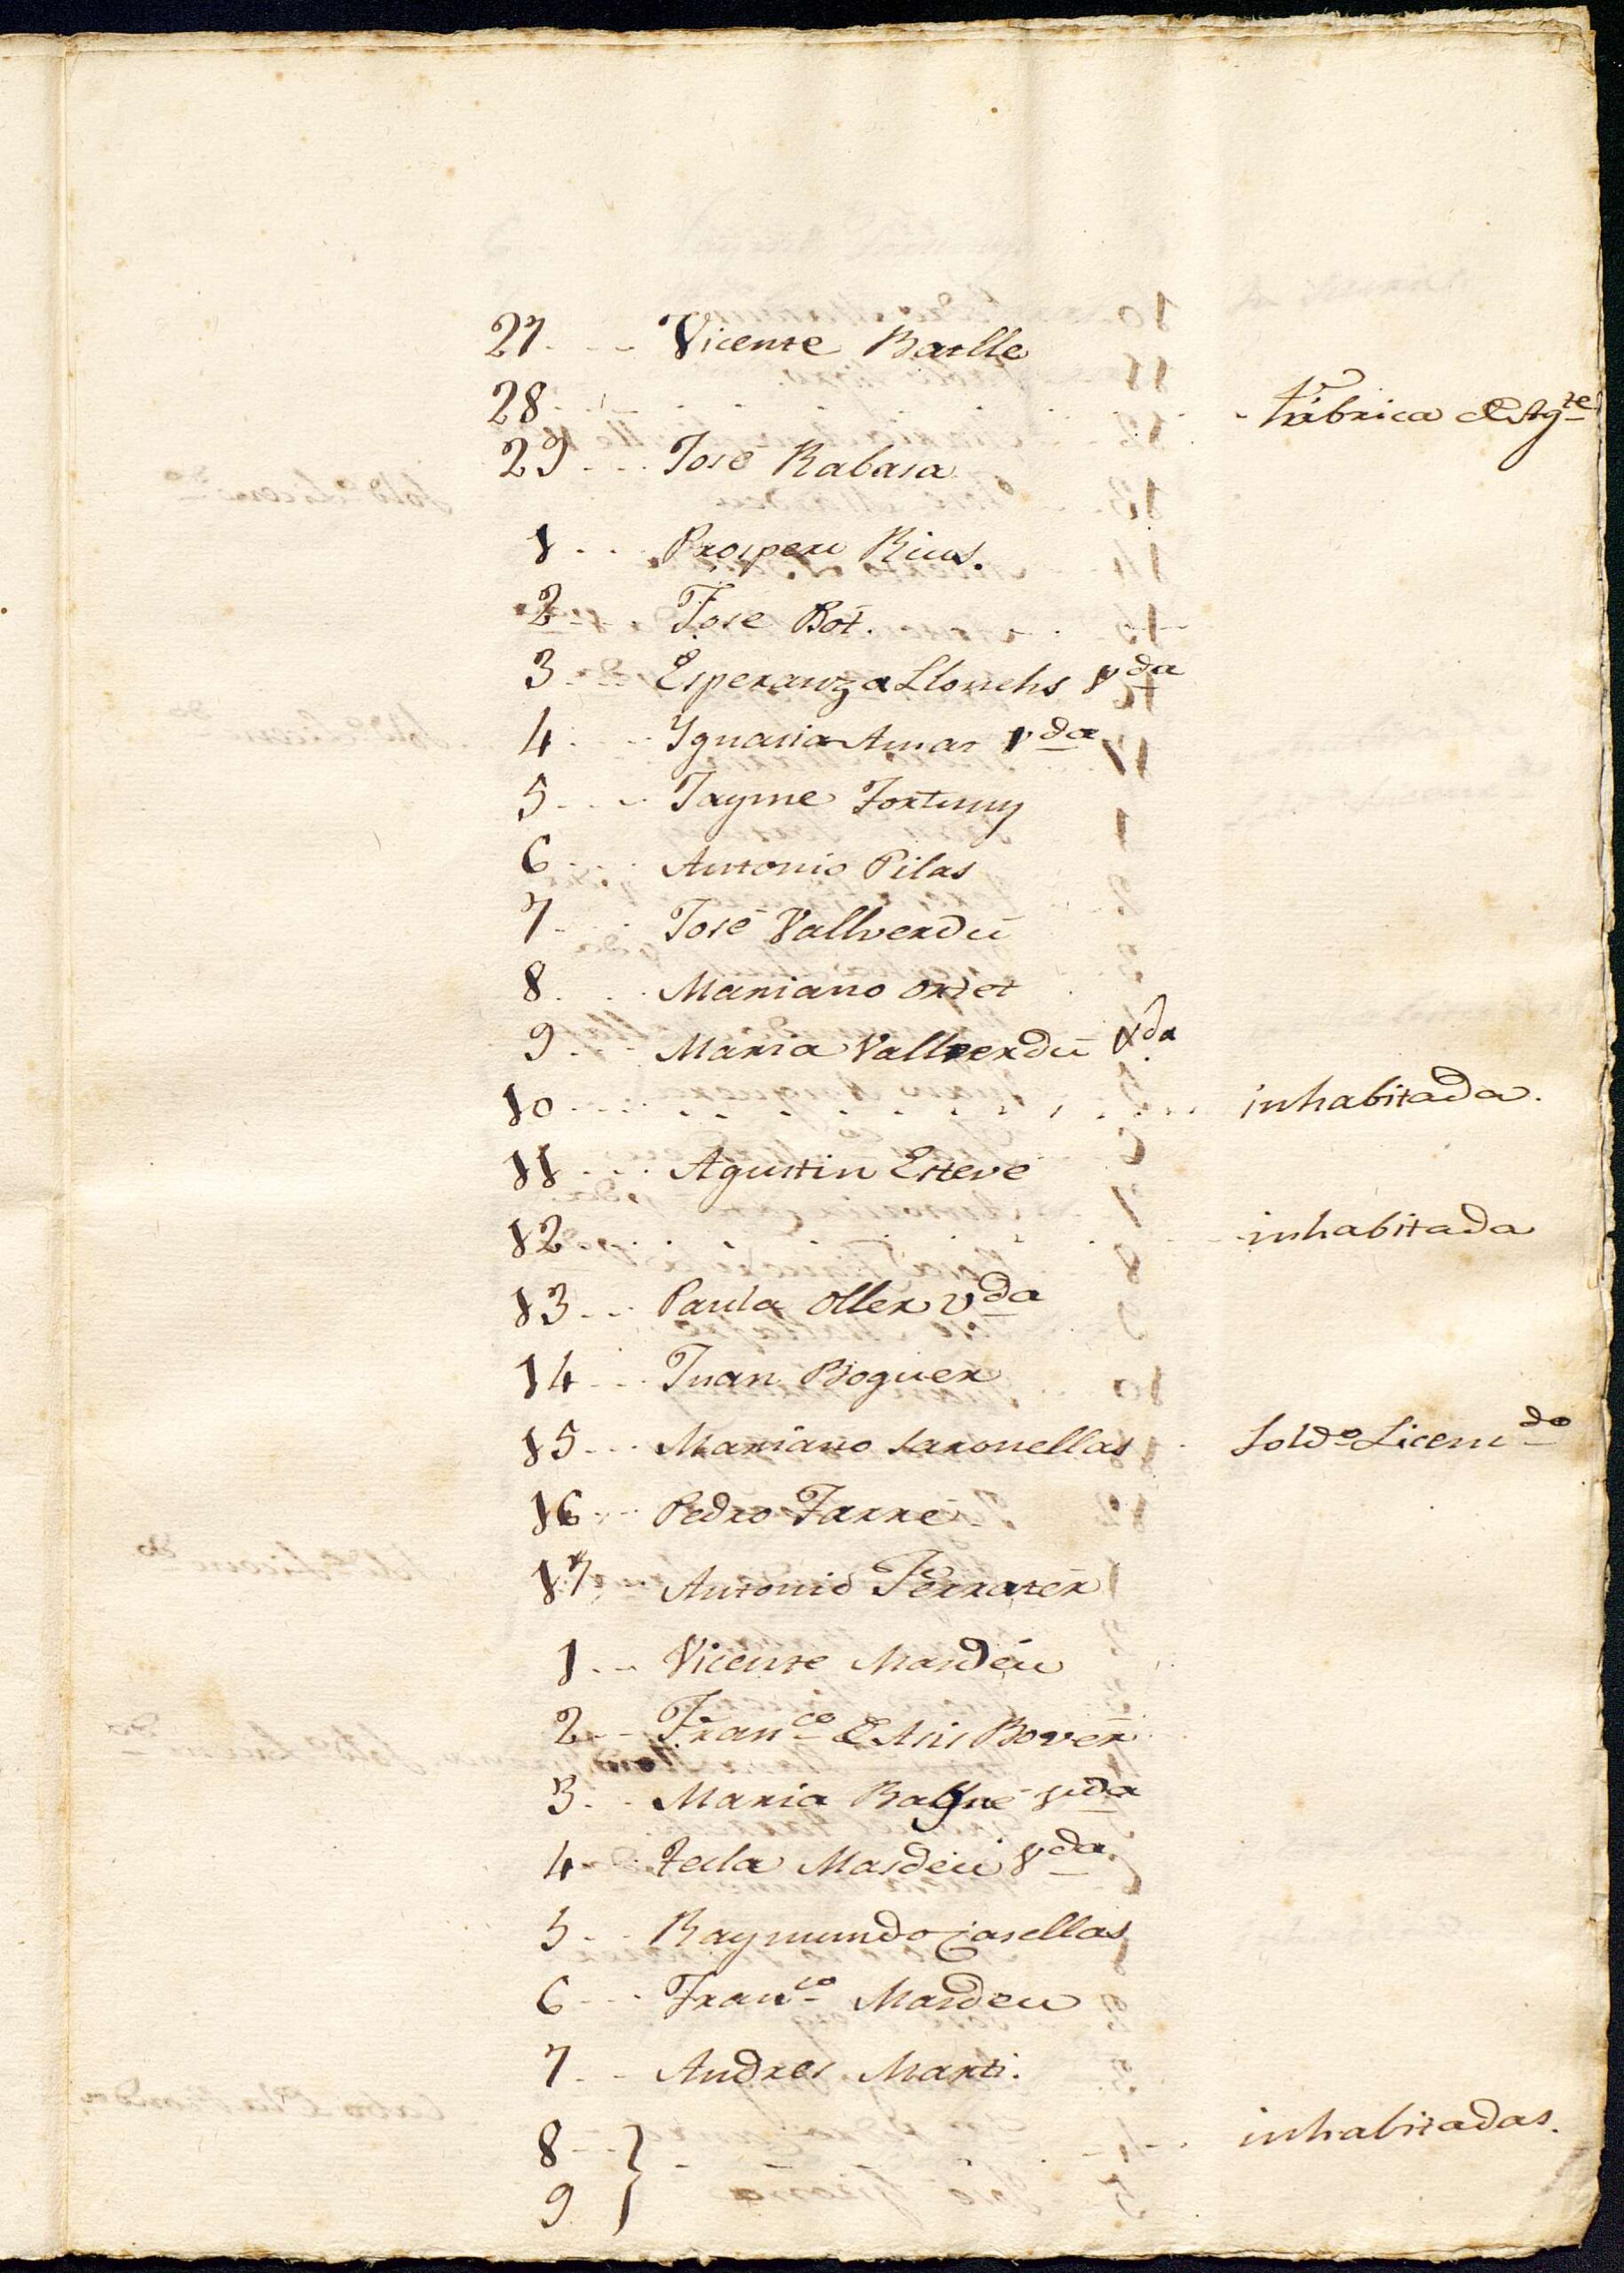 27 . . . Vicente Batlle
28 . . . . . . . . . . Fabrica de Agte
29 . . . José Rabasa
1 . . . Prospero Rius.
2 . . Jose Bot.
3 . . Esperanza Llonchs Vda
4 . . . Ygnasia Amar Vda
5 . . . Jayme Fortuny
6 . . . Antonio Pilas
7 . . . José Vallverdú
8 . . . Mariano Ortet
9 . . . Maria Vallverdú Vda
10 . . . . . . . . . . inhabitada.
11 . . . Agustin Esteve
12 . . . . . . . . . . inhabitada
13 . . . Paula Oller Vda
14 . . . Juan Boguer
15 . . . Mariano Saronellas . Soldo Licendo
16 . . . Pedro Farré
17 . . Antonio Ferrater
1 . . . Vicente Masdéu
2 . . Franco de Asis Bover
3 . . Maria Vda
4 . . Tecla Masdeu Vda
5 . . Raymundo Casellas
6 . . . Franco Masdeu
7 . . Andres Marti.
8 . . } . . . . . inhabitadas.
9 }